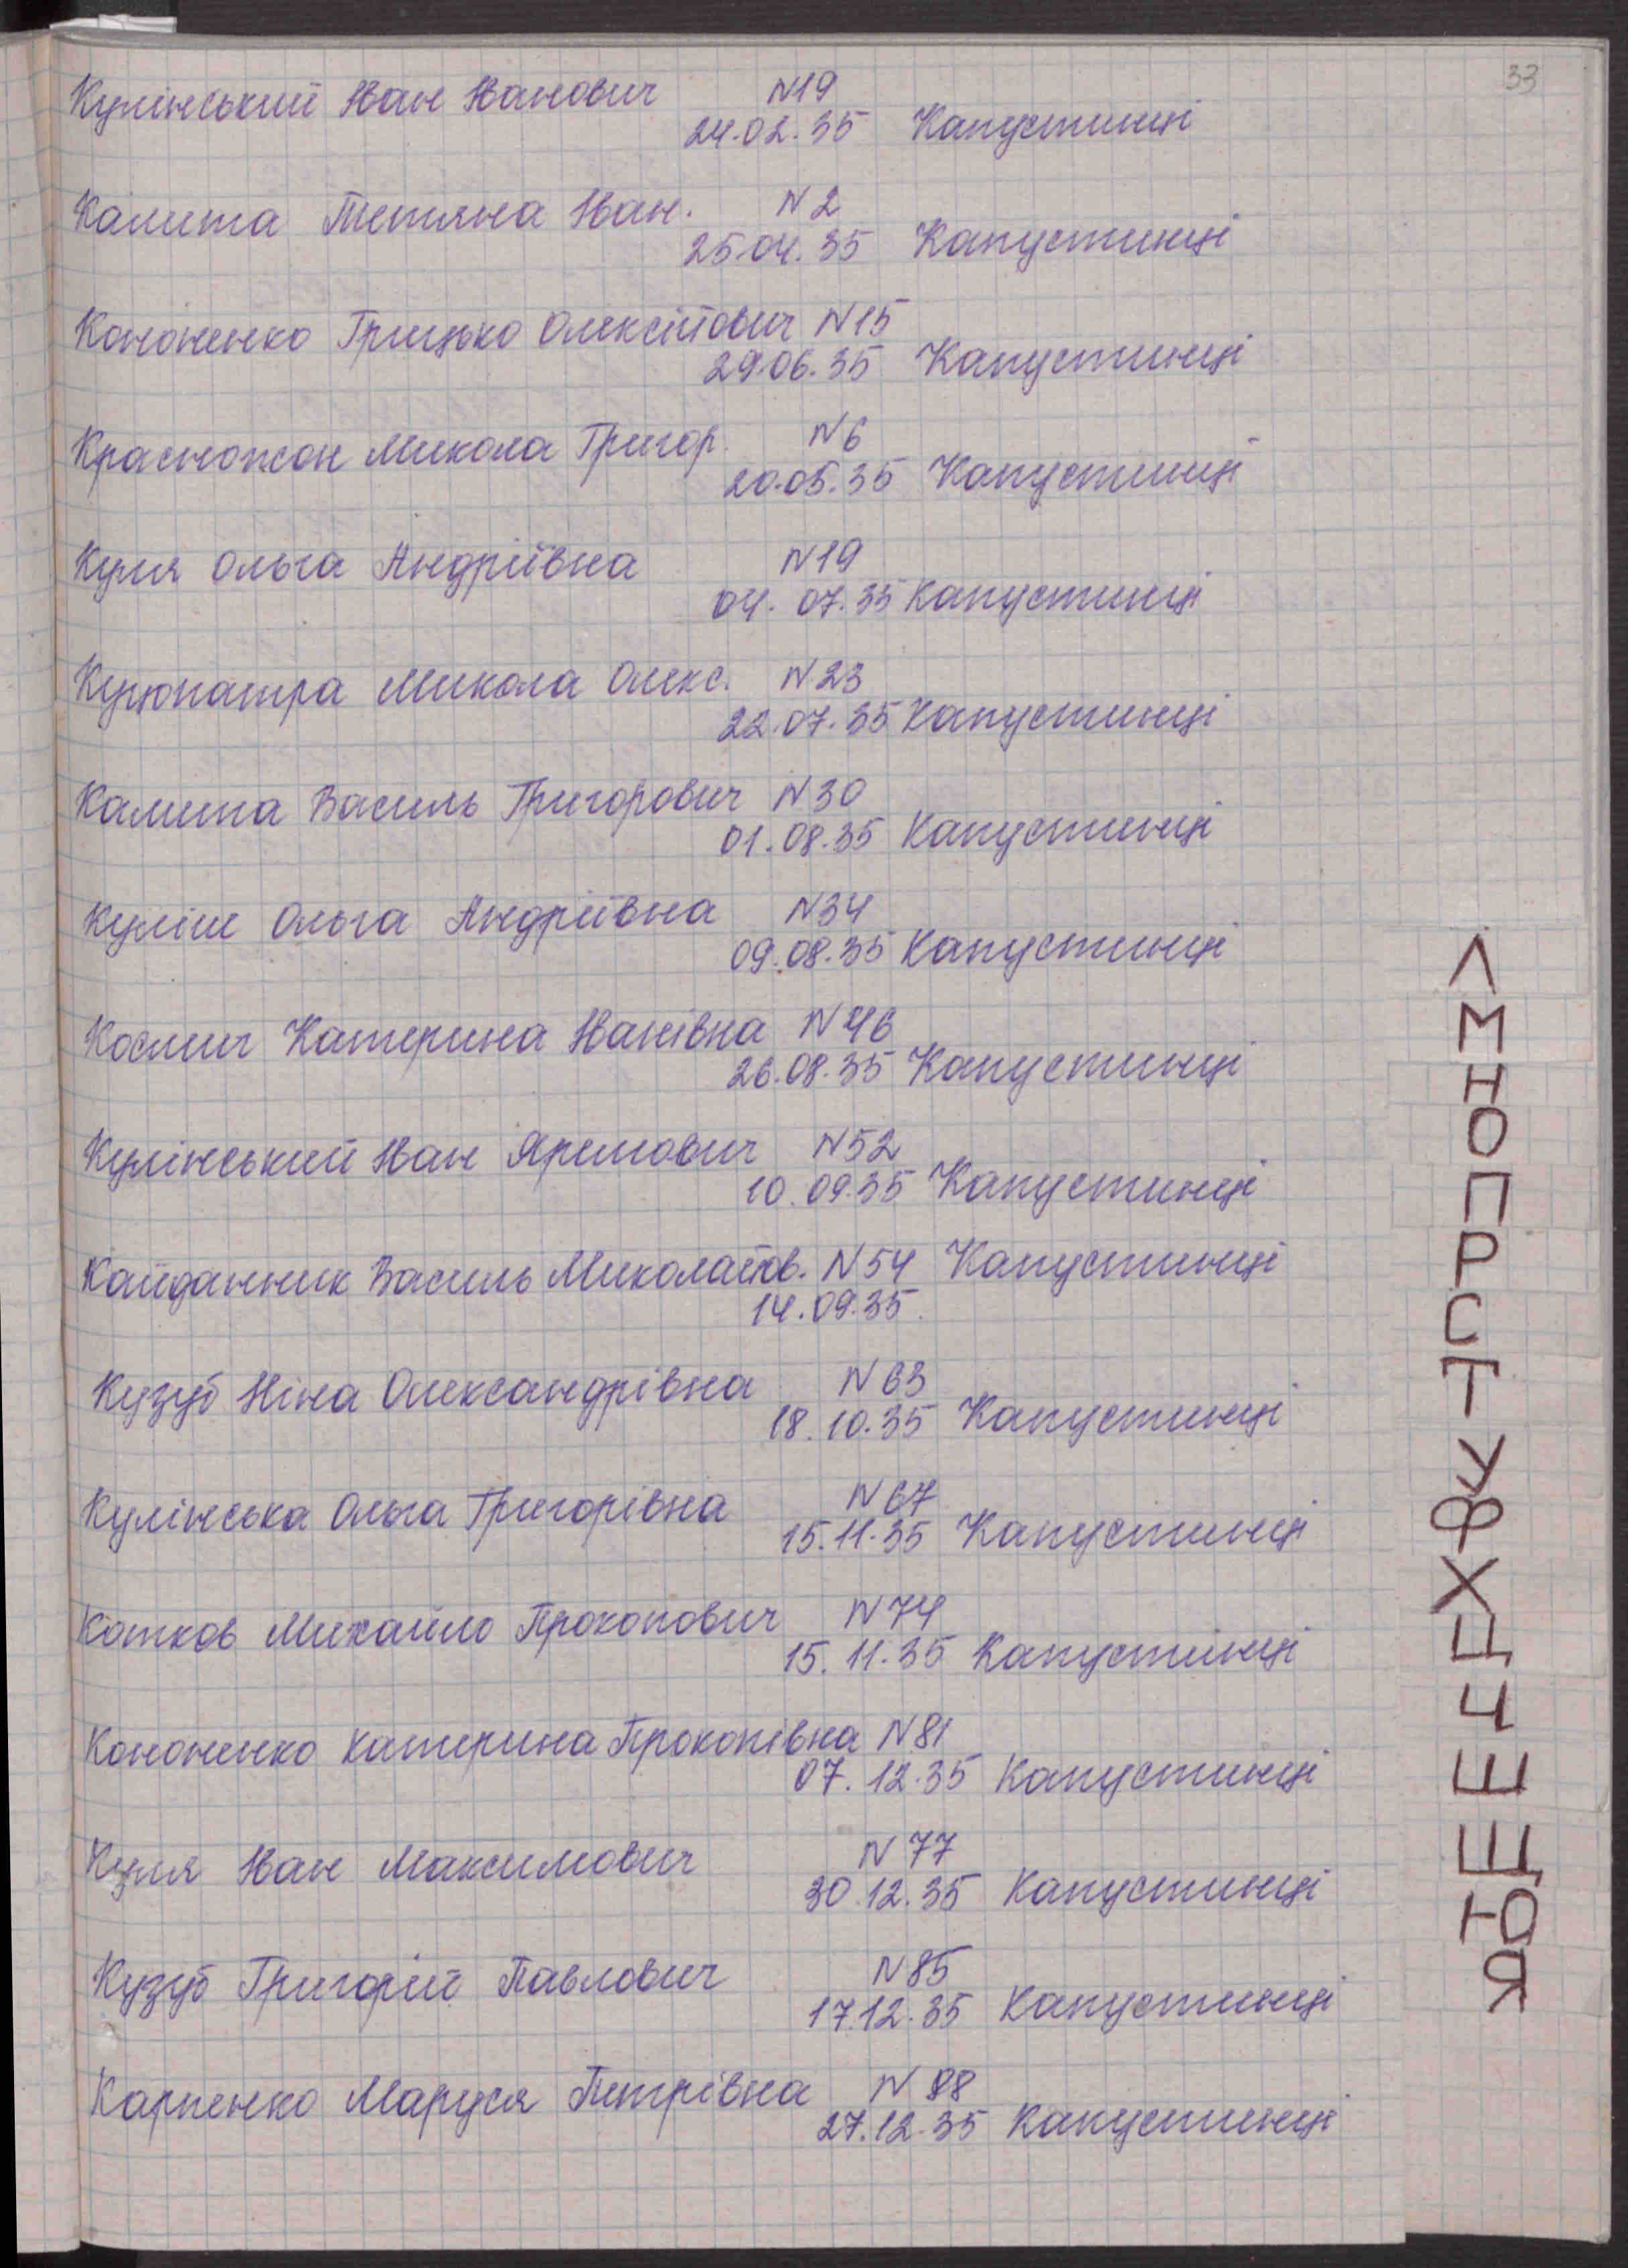 33
Кулінський Іван Іванович N19
24.02.35 Капустинці
Калита Тетяна Іван. N2
25.04.35 Капустинці
Кононенко Грицько Олексійович N15
29.06.35 Капустинці
Красножон Микола Григор. N6
20.05.35 Капустинці
Куля Ольга Андріївна N19
04.07.35 Капустинці
Куцюпатра Микола Олекс. N23
22.07.35 Капустинці
Калита Василь Григорович N30
01.08.35 Капустинці
Куліш Ольга Андріївна N34
09.08.35 Капустинці
Космич Катерина Іванівна N46
26.08.35 Капустинці
Кулінський Іван Яремович N52
10.09.35 Капустинці
Кайданник Василь Миколайов. N54 Капустинці
14.09.35.
Кузуб Ніна Олександрівна N63
18.10.35 Капустинці
Кулінська Ольга Григорівна N67
15.11.35 Капустинці
Котков Михайло Прокопович N74
15.11.35 Капустинці
Кононенко Катерина Прокопівна N81
07.12.35 Капустинці
Куля Іван Максимович N77
30.12.35 Капустинці
Кузуб Григорій Павлович N85
17.12.35 Капустинці
Карпенко Маруся Петрівна N88
27.12.35 Капустинці
Л
М
Н
О
П
Р
С
Т
У
Ф
Х
Ц
Ч
Ш
Щ
Ю
Я